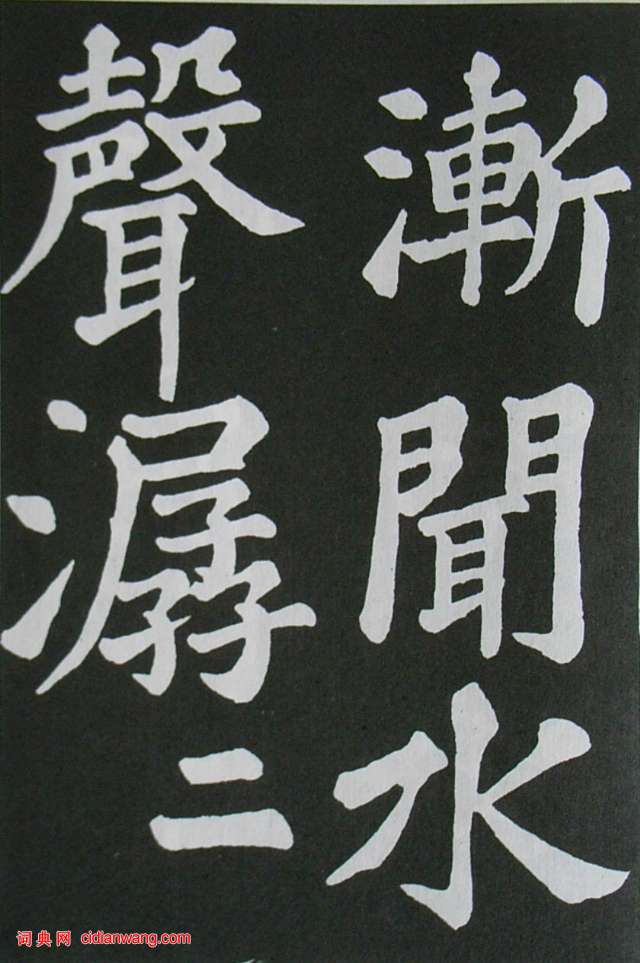 漸聞水
聲潺二
词典网 cidianwang.com